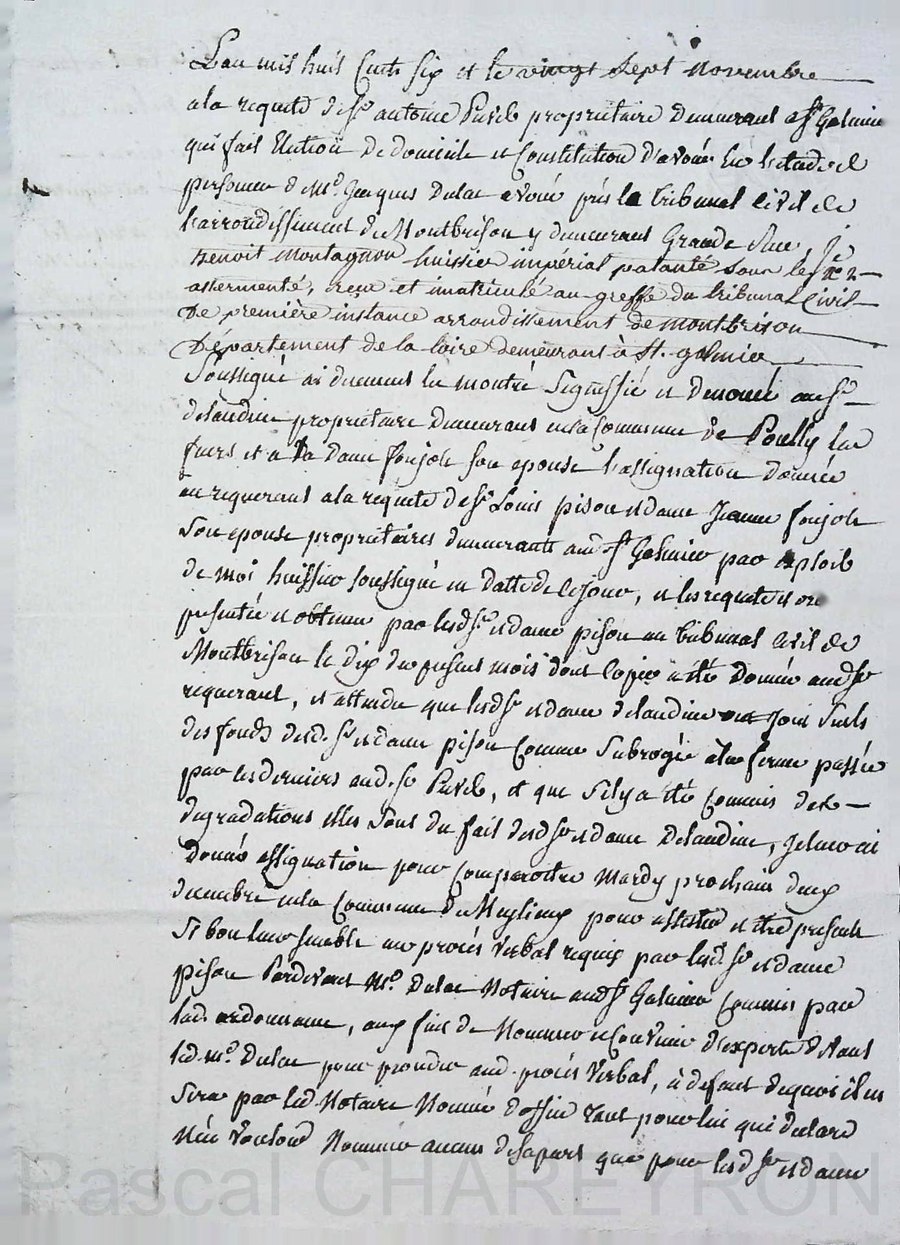 L'an mil huit Cents six et le vingt sept novembre
a la requete de sr antoine proprietaire demeurant a st Galmier
qui fait Election de domicile et Constitution d'avoué en letude et
personne de Me. Jacques Dulac avoué près le tribunal civil de
l'arrondissement de Montbrison y demeurant Grande Rue, Je
Benoit Montagnon huissier impérial patanté sous le no. 2
assermenté, reçu et imatriculé au greffe du tribunal Civil
De première instance arrondissement de montbrison
Département de la loire demeurant à St. galmier
soussigné ai duement montré signiffié et denoncé au sr
delandine proprietaire demeurant en la Commune de Pouilly les
feurs et a la dame son epouse l'assignation donnée
au requerant a la requete de sr Louis pison et dame Jeanne
son epouse proprietaires demeurants aud. st Galmier par exploit
de moi huissier soussigné en datte de ce jour, et les requete et ore
presentée et obtenue par lesd. sr et dame pison au tribunal civil de
Montbrison le dix du present mois dont copie a été donnée aud. sr
requerant, et attendu que lesd. sr et dame delandine ont Joui seuls
des fonds desd. sr et dame pison comme subrogés a la ferme passée
par ces derniers aud. sr, et que s'il y a été commis des
degradations elles sont du fait desd. sr et dame Delandine, Je leur ai
donné assignation pour comparoitre mardy prochain deux
decembre en la Commune de Meylieux pour assister et etre presents
si bon leur semble au procès verbal requis par lesd. sr et dame
pison Pardevant Me. Dulac Notaire aud. st Galmier commis par
lad. ordonnance, aux fins de Nommer et Convenir d'experts devant
led. me. Dulac pour proceder aud. procès verbal, à defaut de quoi il en
sera par led. Notaire Nommé d'office tant pour lui qui declare
n'en vouloir Nommer aucun de sa part que pour lesd. sr et dame
Pascal CHAREYRON